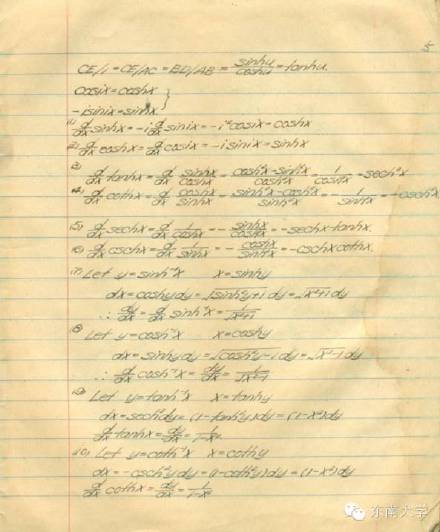 5
CE/1 = CE/AC = BD/AB = sinhu/coshu = tanhu.
cosix = coshx }
-isinix = sinhx }
(1) d/dx sinhx = -i d/dx sinix = -i² cosix = coshx
(2) d/dx coshx = d/dx cosix = -isinix = sinhx
(3) d/dx tanhx = d/dx sinhx/coshx = cosh²x-sinh²x/cosh²x = 1/cosh²x = sech²x
(4) d/dx cothx = d/dx coshx/sinhx = sinh²x-cosh²x/sinh²x = -1/sinh²x = -csch²x
(5) d/dx sechx = d/dx 1/coshx = -sinhx/cosh²x = -sechx·tanhx.
(6) d/dx cschx = d/dx 1/sinhx = -coshx/sinh²x = -cschxcothx.
(7) Let y=sinh⁻¹x x=sinhy
dx=coshydy=√sinh²y+1 dy=√x²+1 dy
∴ dy/dx = d/dx sinh⁻¹x = 1/√x²+1
(8) Let y=cosh⁻¹x x=coshy
dx=sinhydy=√cosh²y-1 dy=√x²-1 dy
∴ d/dx cosh⁻¹x = dy/dx = 1/√x²-1
(9) Let y=tanh⁻¹x x=tanhy
dx=sech²ydy=(1-tanh²y)dy=(1-x²)dy
d/dx tanhx = dy/dx = 1/1-x²
(10) Let y=coth⁻¹x x=cothy
dx=-csch²ydy=(1-coth²y)dy=(1-x²)dy
d/dx cothx = dy/dx = 1/1-x²
东南大学